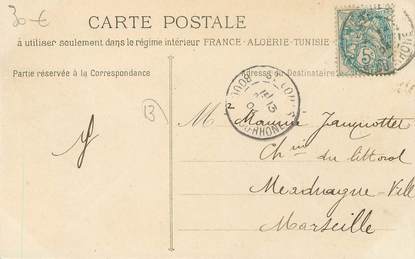 30 €
CARTE POSTALE
à utiliser seulement dans le régime intérieur FRANCE - ALGERIE - TUNISIE
Partie réservée à la Correspondance
Adresse du Destinataire
5
B
M Maurice Jeannottet
Ch in du littoral
Marseille